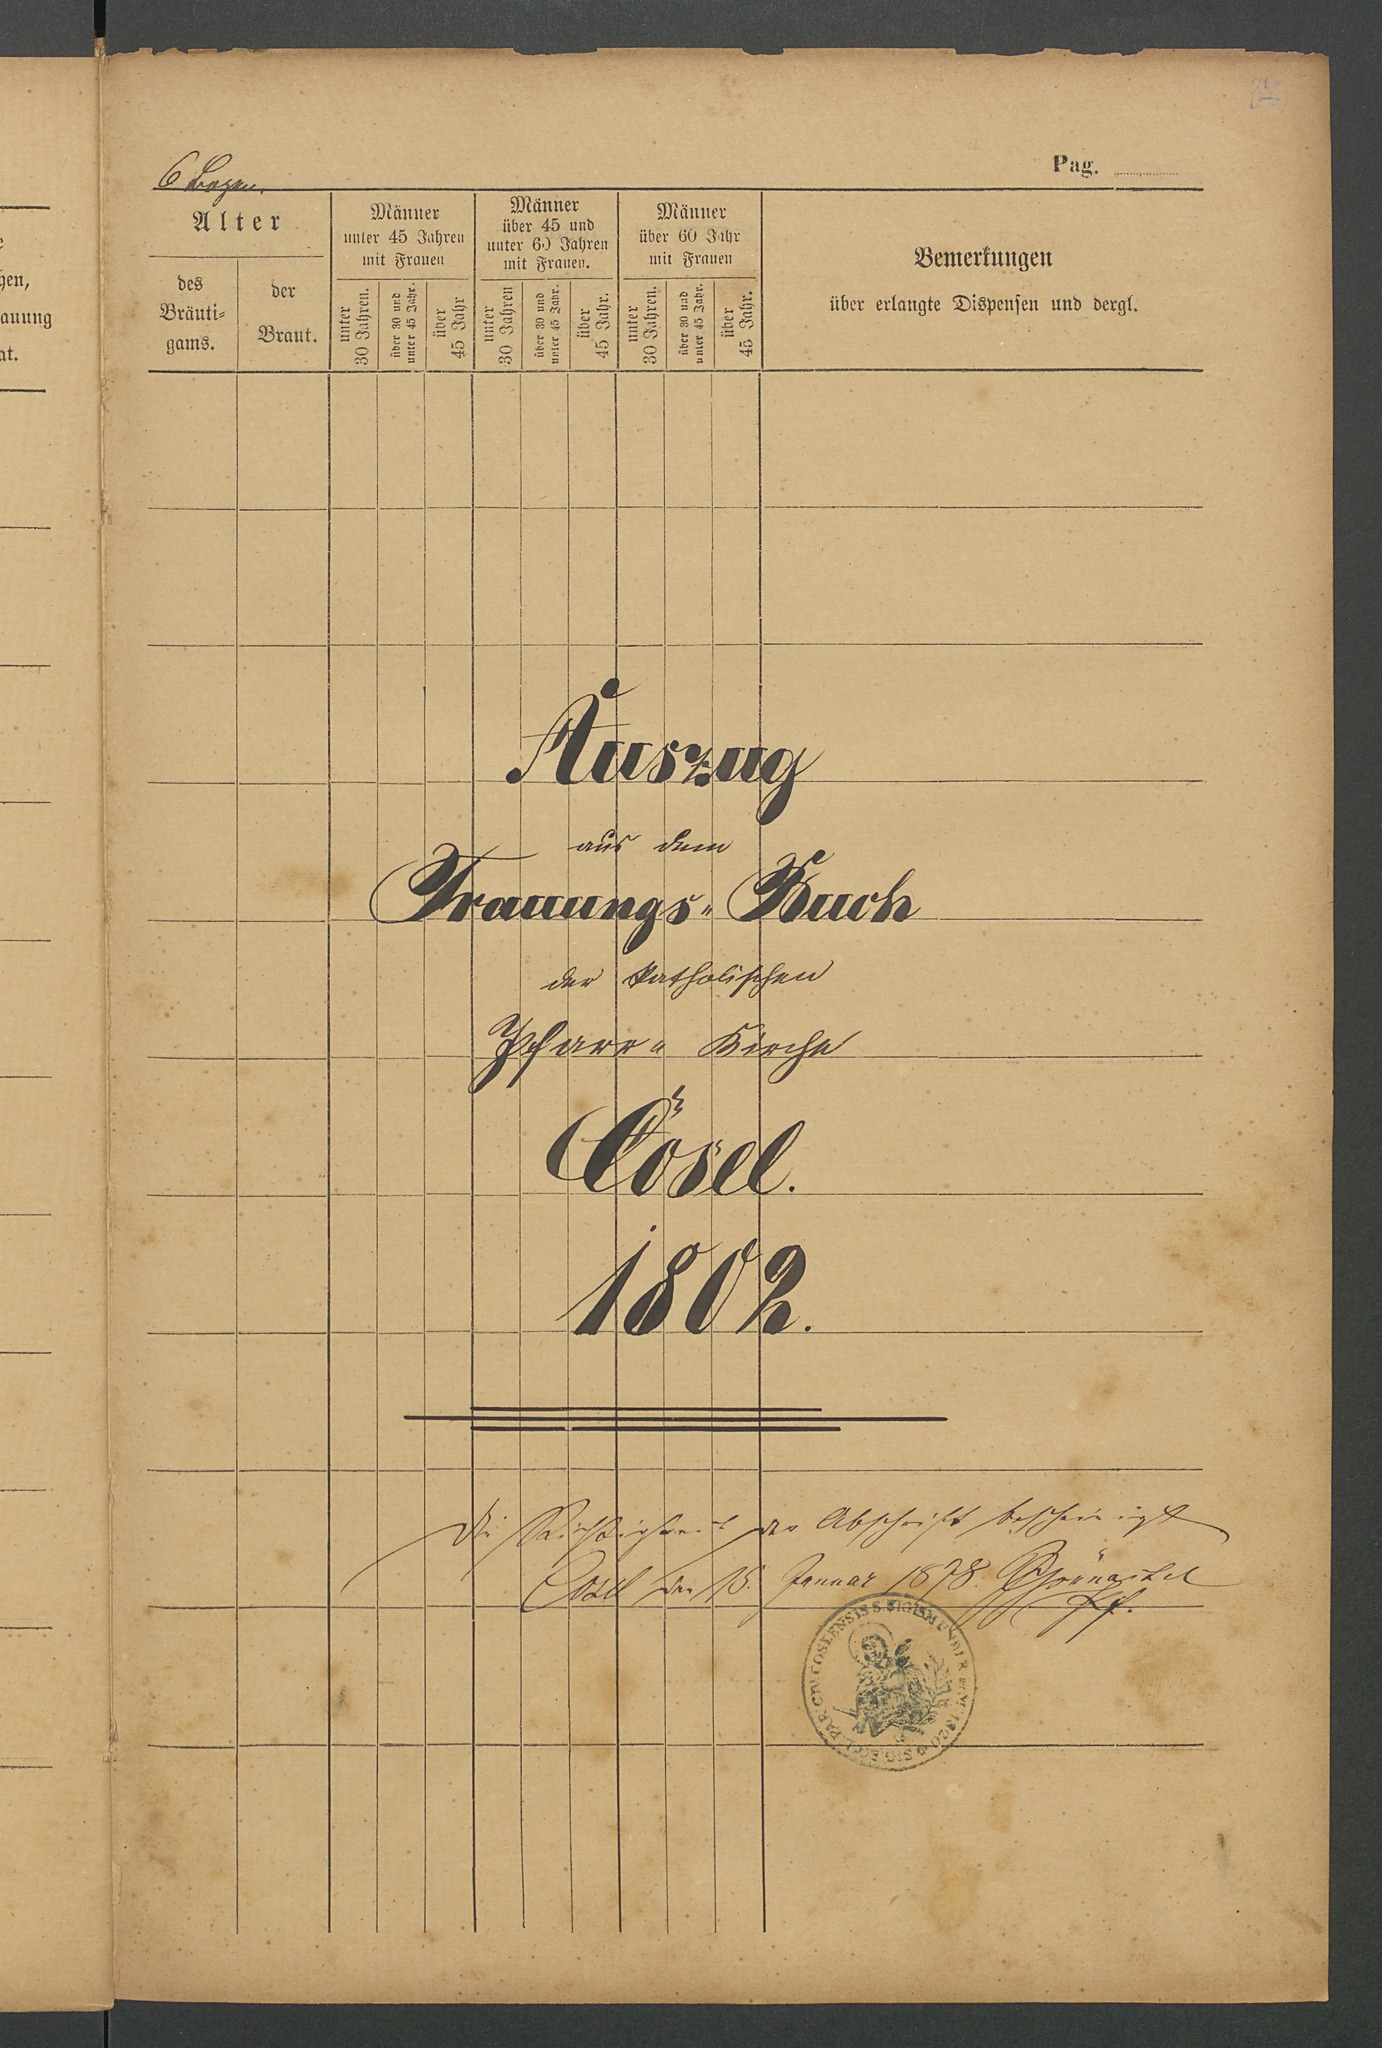 Pag.
6 Bogen.
Alter
des
Bräuti-
gams.
der
Braut.
Männer
unter 45 Jahren
mit Frauen
unter
30 Jahren.
über 30 und
unter 45 Jahr.
über
45 Jahr
Männer
über 45 und
unter 60 Jahren
mit Frauen.
unter
30 Jahren
über 30 und
unter 45 Jahr.
über
45 Jahr.
Männer
über 60 Jahr
mit Frauen
unter
30 Jahren.
über 30 und
unter 45 Jahr.
über
45 Jahr.
Bemerkungen
über erlangte Dispensen und dergl.
hen,
auung
at.
Auszug
aus dem
Trauungs-Buch
der katholischen
Pfarr-Kirche
Cosel.
1802.
Die Richtigkeit der Abschrift bescheinigt
Cosel den 15. Januar 1878.
Pf.
COSLENSIS S. SIGISMUNDI 1820 SIG. ECCL. PAR.